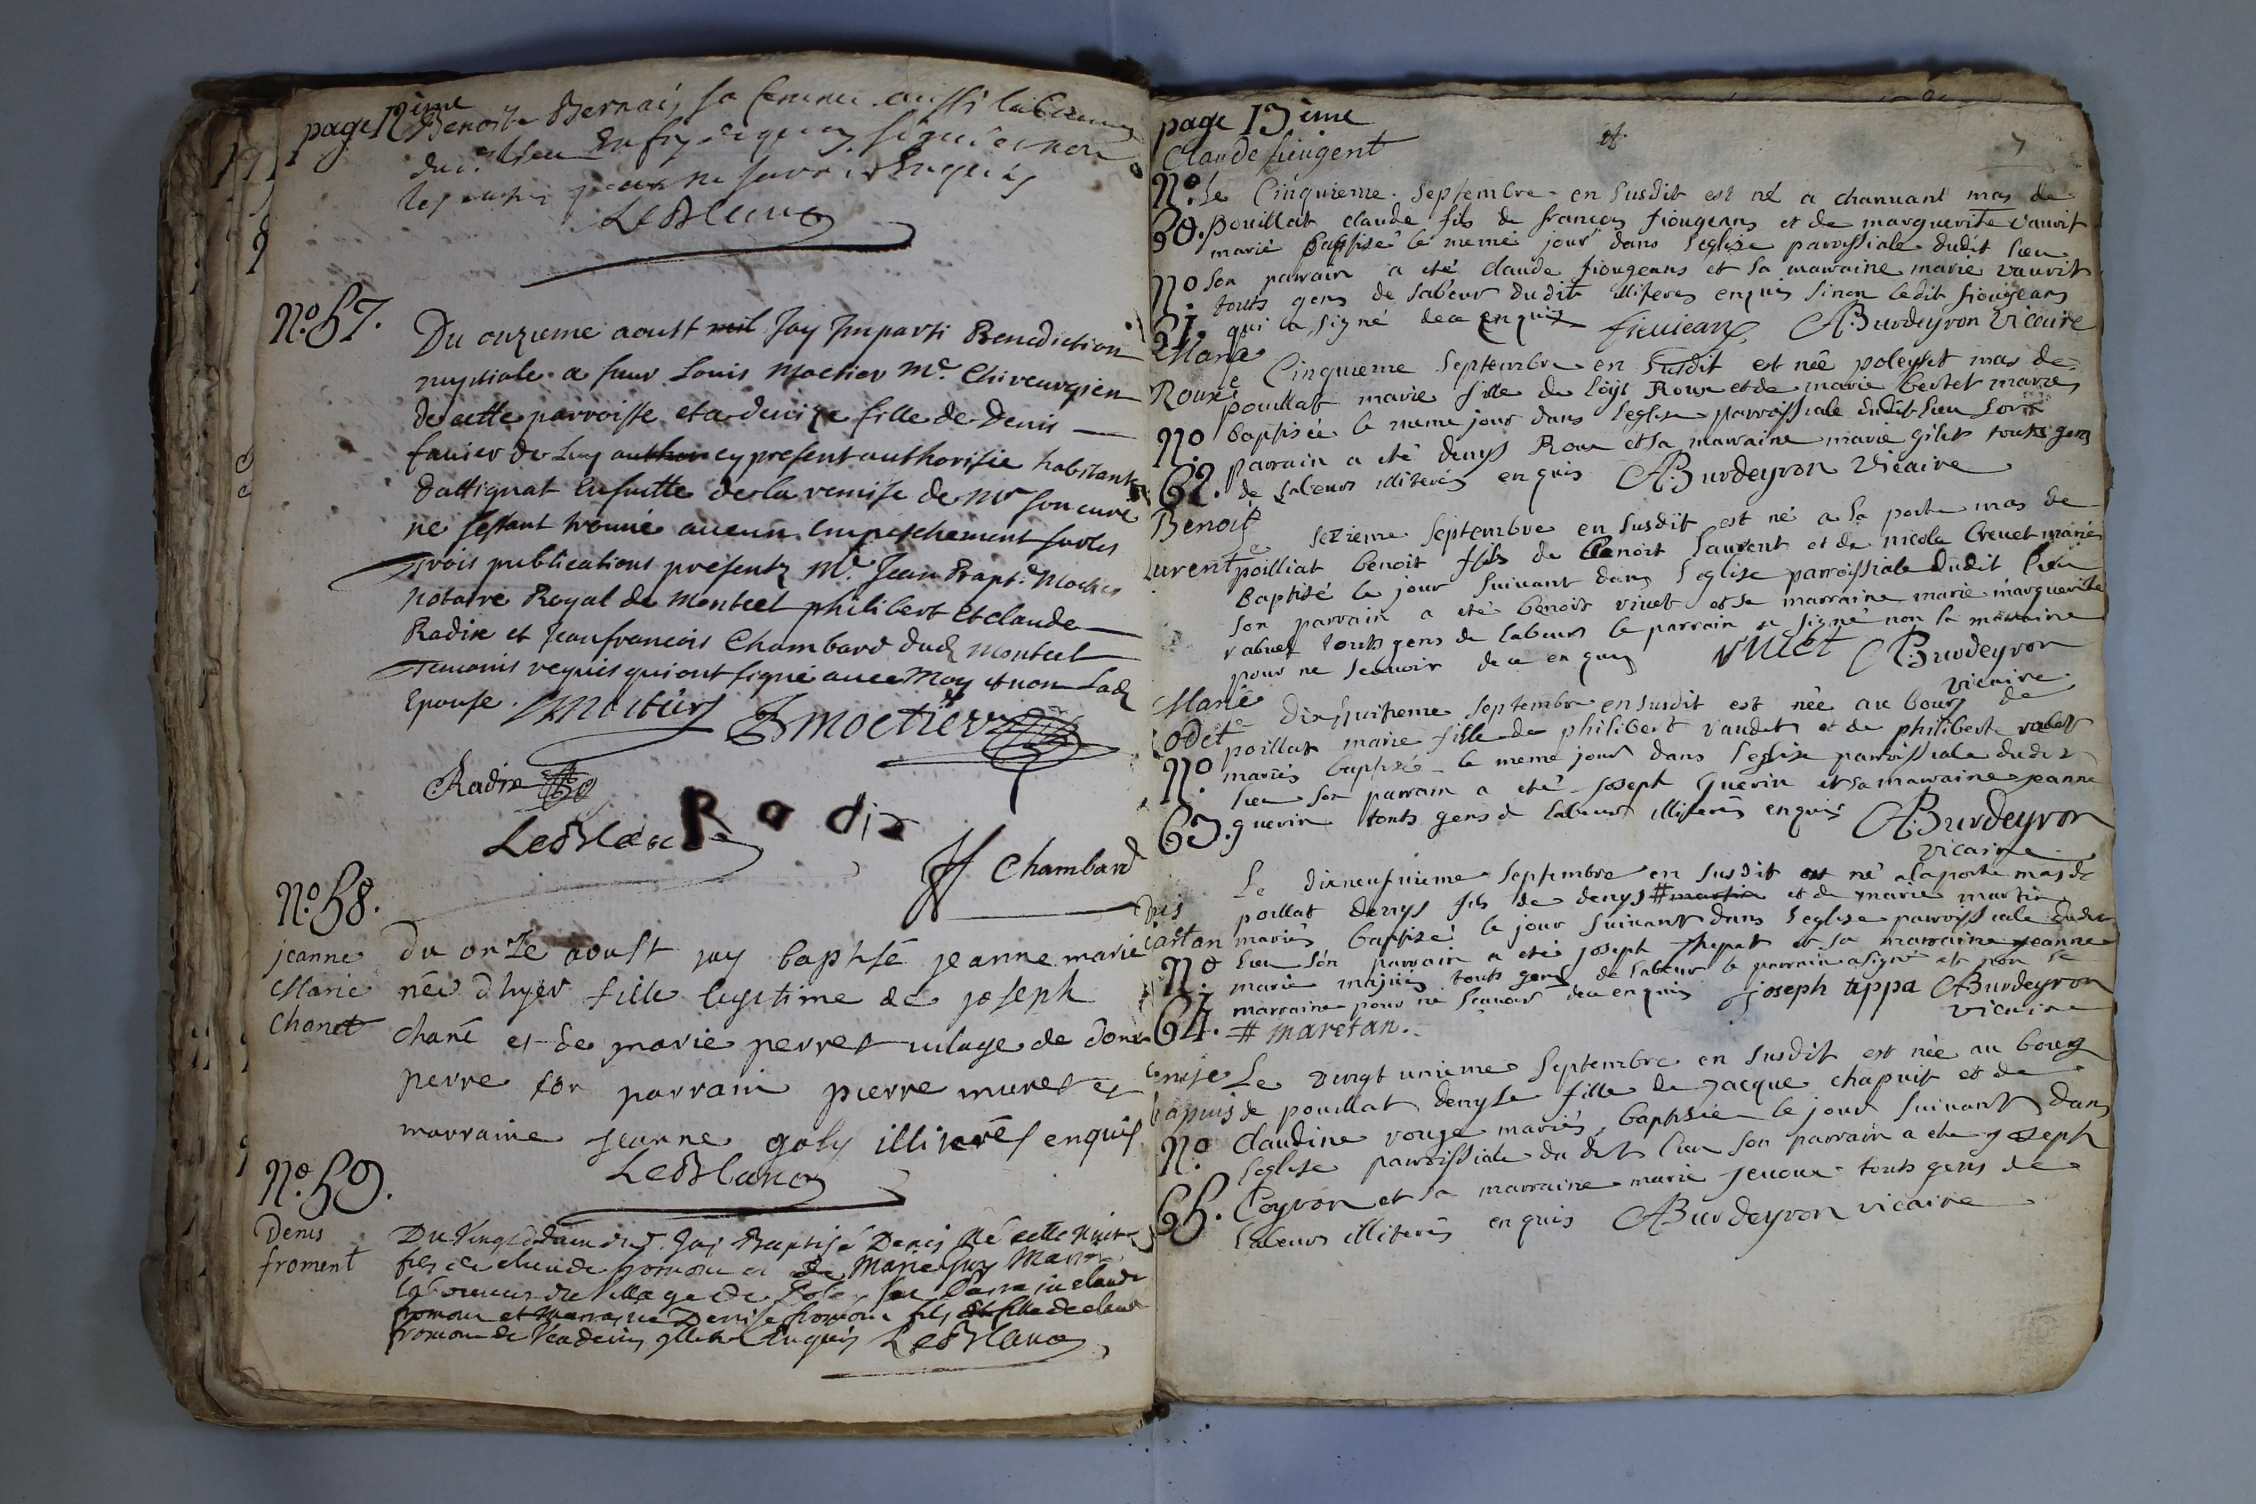 page 12ieme
Benoite Bernais sa femme aussi
du d. lieu enquis signé et non
LeBlanc
No. 57.
Du onzieme aoust mil Jay Imparti Benediction
nuptiale a sieur Louis Moctier Me. Chireurgien
de cette parroisse et a denize fille de Denis
favier de luy author cy present authorisée habitante
dattignat Ensuitte de la remise de Mr son curé
ne sestant trouvé aucun Empeschement sur les
trois publications presents Me. Jean Bapt. Moctier
notaire Royal de Montcel philibert et claude
Radix et Jean francois Chambard dud. Montcel
temoins requis qui ont signé avec Moy et non Lad.
Epouse. Moctier J moctier
Radix
LeBlanc Radix
JF Chambard
No. 58.
jeanne
Marie
Chanet
du onze aoust jay baptisé jeanne marie
née dhyer fille legitime de joseph
chané et de marie perret vilage de dom
perre son parrain pierre muret et
marraine jeanne goly illiterés enquis
LeBlanc
No. 59.
Denis
froment
Du Vingt Jay Baptisé Denis Né cette nuit
fils de claude fromon et de Marie Guy Mariés
laboureurs du Village de son Parrain claude
fromon et Marraine Denise fromon fils et fille de claude
fromon de Enquis LeBlanc
page 13ieme
Claude fiougent
No. Le Cinquieme Septembre en susdit est né a channant mas de
60. pouillat claude fils de francois fiougeans et de marguerite vauvit
marié baptisé le meme jour dans leglise parroissiale dudit lieu
No son parrain a eté claude fiougeans et sa marraine marie vauvit
61. touts gens de labeur dudit illiteres enquis sinon ledit fiougeans
qui a signé de ce enquis ABurdeyron Vicaire
Marie
Roux
Le Cinquieme Septembre en susdit est née poleyset mas de
pouillat marie fille de loijs Roux et de marie bertet mariés
No baptisée le meme jour dans leglise parroissiale dudit lieu son
62. parrain a eté denys Roux et sa marraine marie gilet touts gens
de labeur illiterés enquis ABurdeyron Vicaire
Benoit
Laurent
Le sezieme Septembre en susdit est né a la porte mas de
poilliat benoit fils de Benoit Laurent et de nicole Crevet mariés
Baptisé le jour suivant dans leglise parroissiale dudit lieu
son parrain a eté benoit vivet et sa marraine marie marguerite
rabuet touts gens de labeur le parrain a signé non la marraine
pour ne scavoir de ce enquis vivet ABurdeyron
vicaire
Marie
odet
Le Dixhuitieme Septembre en susdit est née au bourg de
poillat marie fille de philibert vaudet et de philiberte rabet
No mariés baptisée le meme jour dans leglise parroissiale dudit
lieu son parrain a eté joseph Guerin et sa marraine jeanne
63. guerin touts gens de labeur illiterés enquis ABurdeyron
vicaire
Le dixneufvieme Septembre en susdit est né a la porte mas de
poillat denys fils de denys # martin et de marie martin
mariés baptisé le jour suivant dans leglise parroissiale dudit
No lieu son parrain a eté joseph thepat et sa marraine jeanne
marie majuis touts gens de labeur le parrain a signé et non la
64. marraine pour ne scavoir de ce enquis joseph tippa ABurdeyron
# maretan. vicaire
Le Vingt unieme Septembre en susdit est née au bourg
de pouillat denyse fille de Jacque chapuit et de
No claudine rouge mariés, baptisée le jour suivant dans
leglise parroissiale du dit lieu son parrain a eté joseph
65. Coyron et sa marraine marie jenoux touts gens de
labeur illiterés enquis ABurdeyron vicaire